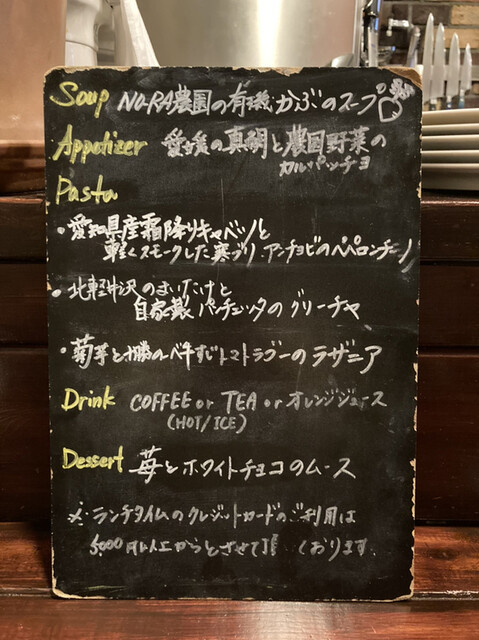 Soup NO-RA農園の有機かぶのスープ
Appetizer 愛媛の真鯛と農園野菜の
カルパッチョ
Pasta
・愛知県産霜降りキャベツと
軽くスモークした寒ブリ、アンチョビのペペロンチーノ
・北軽井沢のまいたけと
自家製パンチェッタのグリーチャ
・菊芋と十勝の牛すじトマトラグーのラザニア
Drink COFFEE or TEA or オレンジジュース
(HOT/ICE)
Dessert 苺とホワイトチョコのムース
※ランチタイムのクレジットカードのご利用は
5000円以上からとさせて頂 おります。